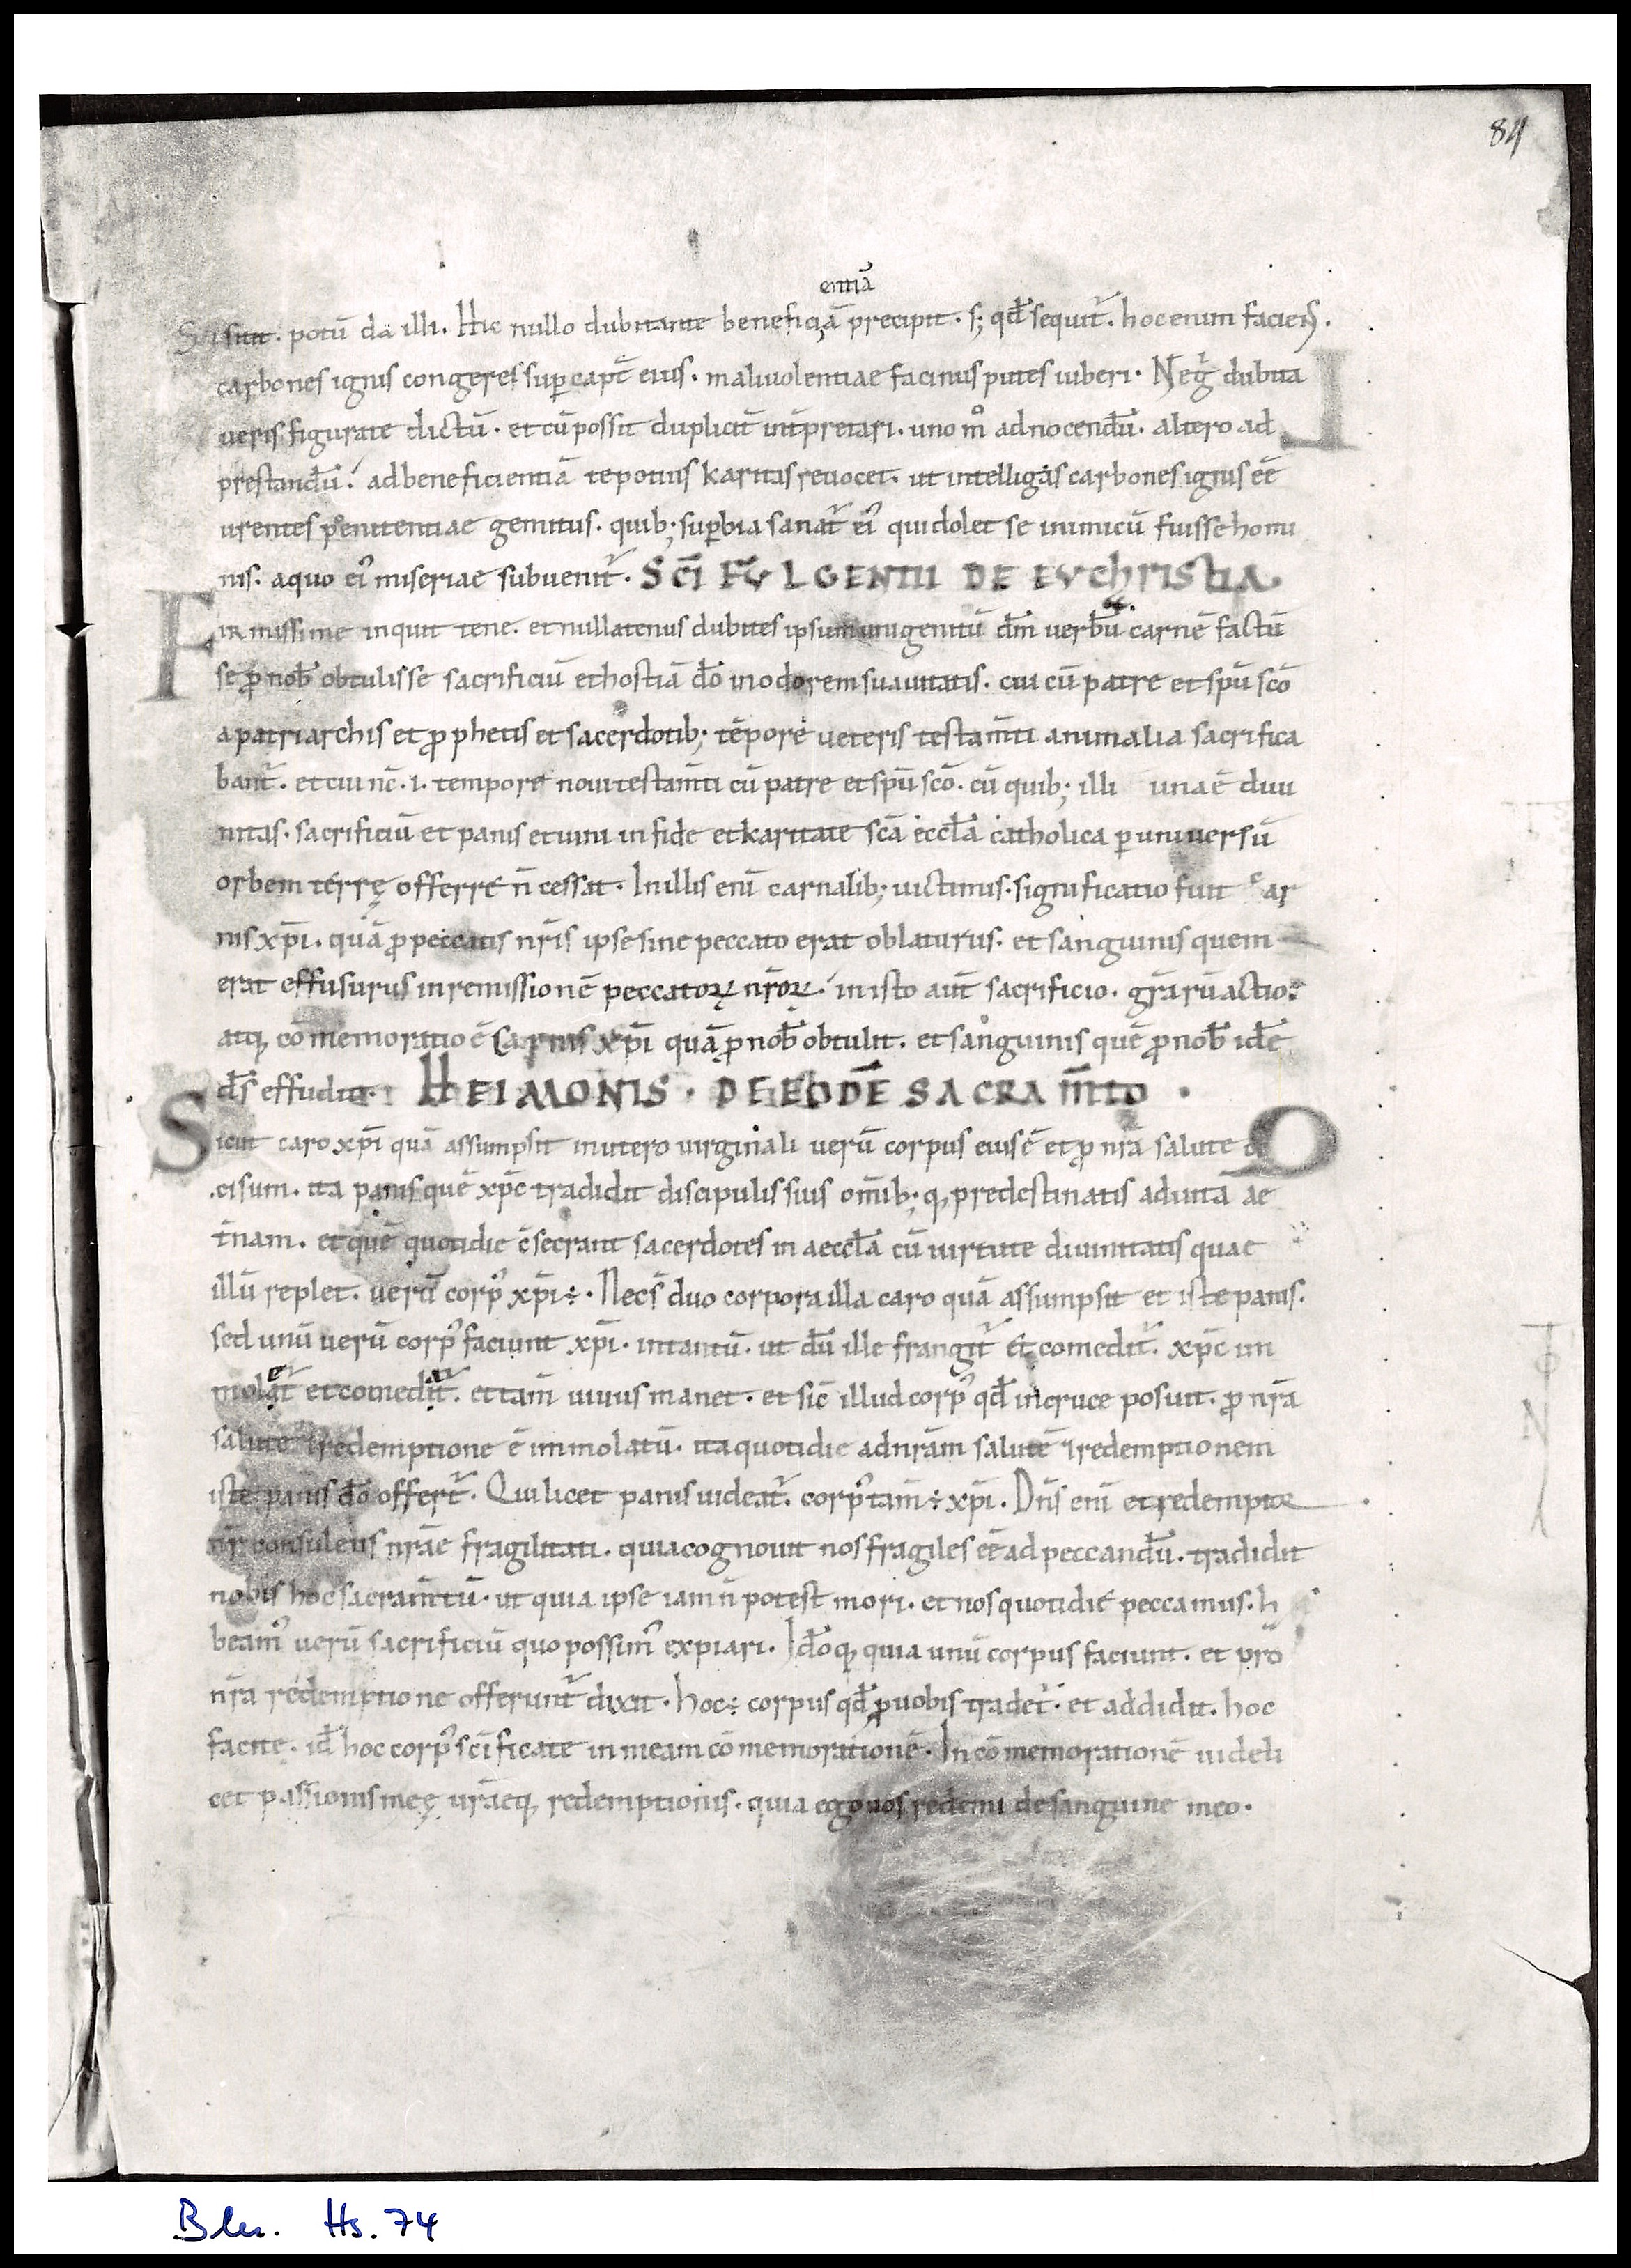 84
entiā
Si sitit. potū da illi. Hic nullo dubitante beneficiā precipit. s; qd̄ sequit᷑. hoc enim faciens.
carbones ignis congeres sup capt̄ eius. malivolentiae facinus putes iuberi. Neg̓ dubita
veris figurate dictū. et cū possit duplicit̄ int̄pretari. uno m̊ ad nocendū. altero ad
prestandū. ad beneficientiā te potius karitas revocet. ut intelligas carbones ignis eē
urentes penitentiae gemitus. quib; supbia sanat᷑ ei᷒ qui dolet se inimicū fuisse homi
nis. a quo ei᷒ miseriae subuenit᷑. SC̄I FVLGENTII DE EVCHRISTIA.
Firmissime inquit tene. et nullatenus dubites ipsum unigenitū dm̄ verbū carnē factū
se ꝓ nob̄ obtulisse sacrificiū et hostiā dō in odorem suavitatis. cui cū patre et spū scō
a patriarchis et ꝓphetis et sacerdotib; tēpore veteris testam̄ti animalia sacrifica
bant᷑. et cui nc̄ .i. tempore novi testam̄ti cū patre et spū scō. cū quib; illi una ē divi
nitas. sacrificiū et panis et vini in fide et karitate scā eccl̄a catholica p universū
orbem terrę offerre n̄ cessat. In illis eni carnalib; uictimis. significatio fuit car
nis xp̄i. quā ꝓ peccatis nr̄is ipse sine peccato erat oblaturus. et sanguinis quem
erat effusurus in remissionē peccatoꝝ nr̄oꝝ. in isto aut̄ sacrificio. gr̄arū actio
atq; cōmemoratio ē Carnis xp̄i quā ꝓ nob̄ obtulit. et sanguinis quē ꝓ nob̄ idē
ds̄ effudit. HEIMONIS. DE EODĒ SACRAM̄TO.
Sicut caro xp̄i quā assumpsit in utero virginali verū corpus eius ē et ꝓ nr̄a salute o
cisum. ita panis quē xp̄c tradidit discipulis suis omīb; q; predestinatis ad uitā ae
t̄nam. et quē quotidie c̄secrant sacerdotes in aeccl̄a cū virtute divinitatis quae
illū replet. verū corp᷒ xp̄i ÷. Nec s̄ duo corpora illa caro quā assumpsit et iste panis.
sed unū verū corp᷒ faciunt xp̄i. in tantū. ut dū ille frangit᷑ et comedit᷑. xp̄c im
molet᷑ et comedat᷑. et tam̄ vivus manet. et sic̄ illud corp᷒ qd̄ in cruce posuit. ꝓ nr̄a
salute ⁊ redemptione ē immolatū. ita quotidie ad nr̄am salutē ⁊ redemptionem
iste panis dō offert᷑. Qui licet panis uideat᷑. corp᷒ tam̄ ÷ xp̄i. Dn̄s eni et redemptor
nr̄ consulens nr̄ae fragilitati. quia cognovit nos fragiles eē ad peccandū. tradidit
nobis hoc sacram̄tū. ut quia ipse iam n̄ potest mori. et nos quotidie peccamus. h
beam᷒ verū sacrificiū quo possim᷒ expiari. Idōq; quia unū corpus faciunt. et pro
nr̄a redemptione offerunt᷑ dixit. hoc ÷ corpus qd̄ ꝓ vobis tradet᷑. et addidit. hoc
facite. id̄ hoc corp᷒ sc̄ificate in meam cōmemorationē. In cōmemorationē uideli
cet passionis meę vr̄aeq; redemptionis. quia ego vos redemi de sanguine meo.
Hs. 74